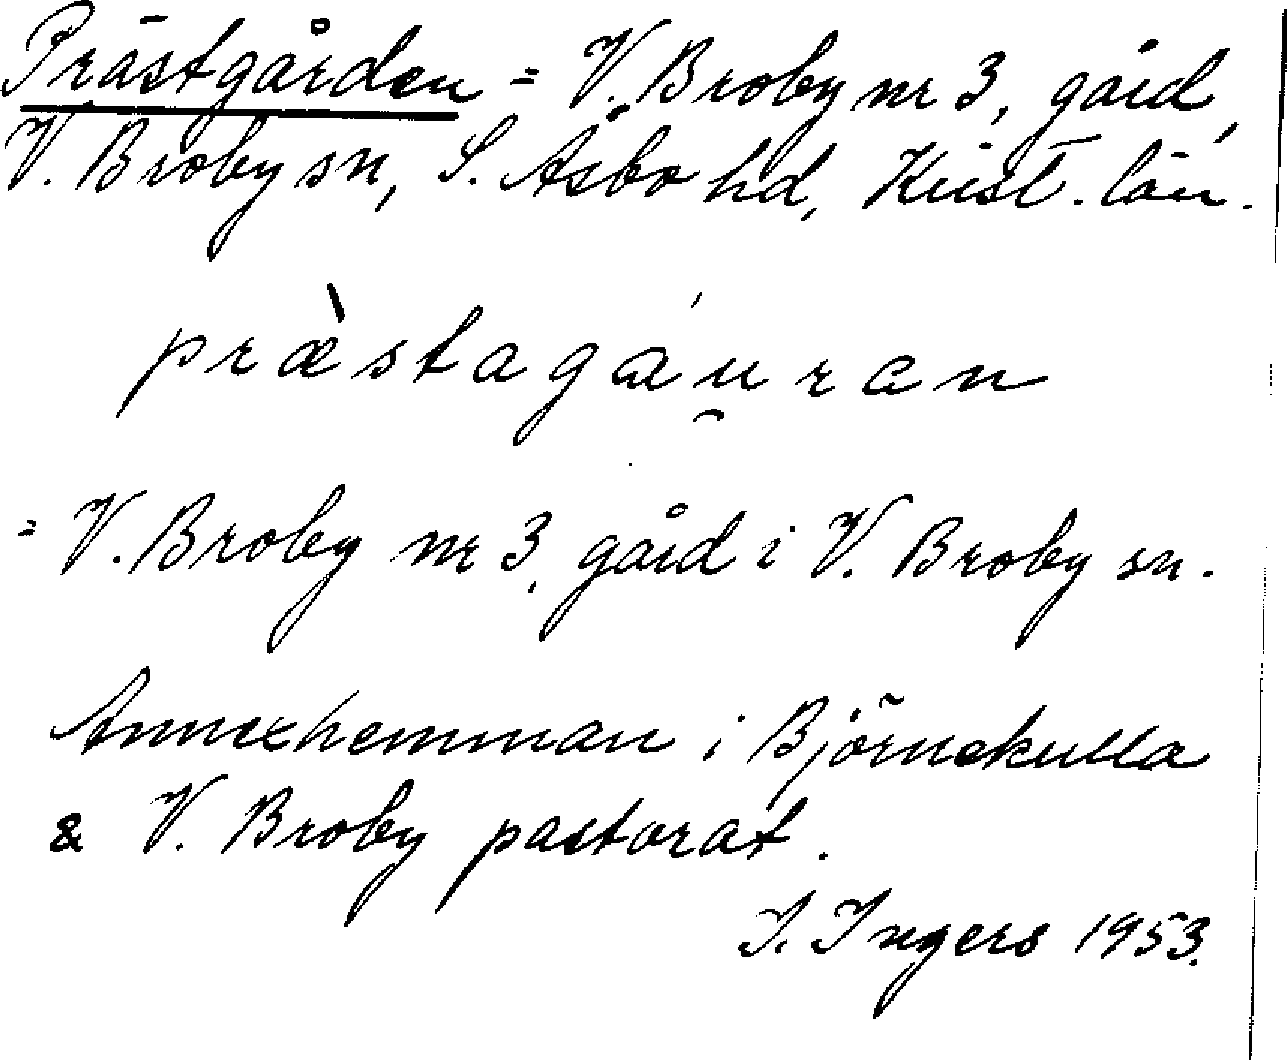 Prästgården = V. Broby nr 3, gård,
V. Broby sn, S. Åsbo hd, Krist. län.
præ̀stagáu̯ran
= V. Broby nr 3, gård i V. Broby sn.
Annexhemman i Björnekulla
& V. Broby pastorat.
I. Ingers 1953.